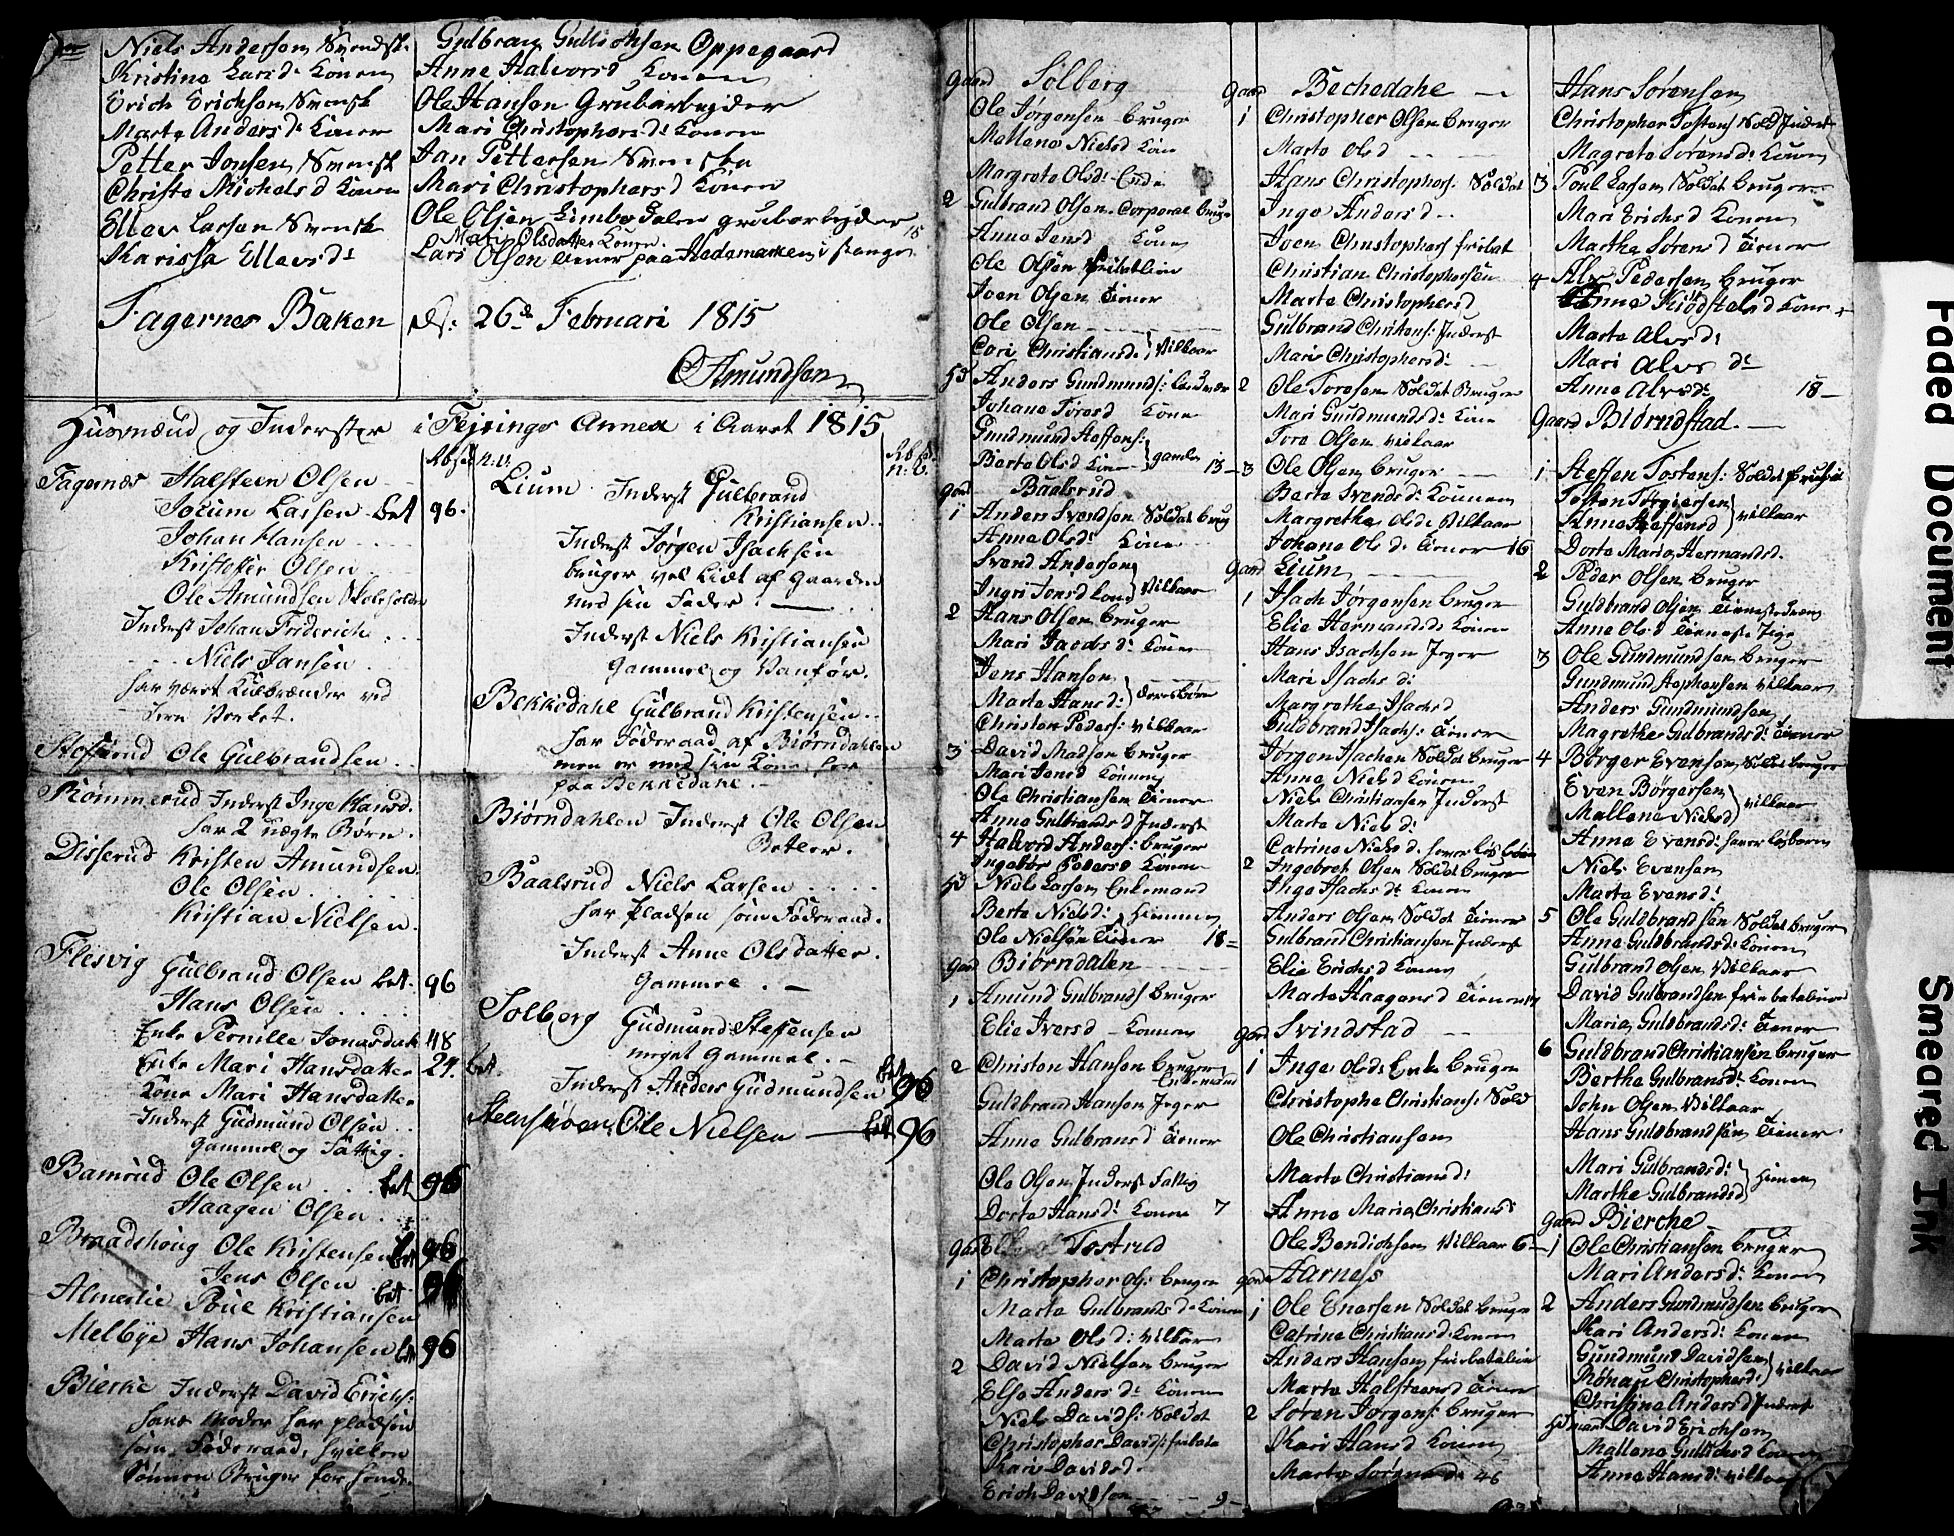 Niels Andersen Svensk.
Kristine Larsd: konen
Erich Erichsen Svensk
Marte Andersd: konen
Petter Jonsen Svensk
Christe Michelsd konen
Ellev Larsen Svensk
Karissa Ellevsd:
Gulbran Oppegaard
Anne Halvorsd konen
Ole Hansen Grubarbeyder
Mari Christophersd: konen
Jan Pettersen Svenske
Mari Christophersd konen
Ole Olsen grubarbeyder
Mari Olsdatter konen. 18
Lars Olsen tiener paa Hedemarken i Stange
Fagernes Baken d: 26de Februari 1815
O Amundsen
Husmænd og Inderster i Fejrings Annex i Aaret 1815
Rbsed. n: v:
Fagernæs Halsteen Olsen
Jocum Larsen bet 96.
Johan Hansen
Kristoffer Olsen
Ole Amundsen Skoleholder
Inderst Johan Friderich
Niels Jansen
har været Kulbrænder ved
Jern Verket.
Ole Gulbrandsen
Rømmerud Inderst Inge Hansd.
har 2 uægte Børn.
Disserud Kristen Amundsen
Ole Olsen
Kristian Nielsen
Flesvig Gulbrand Olsen bet. 96
Hans Olsen
Enke Pernille Jonasdatt 48
Enke Mari Hansdatter 24. bet.
Kone Mari Hansdatter
Inderst Gudmund Olsen
gammel og Fattig.
Bamrud Ole Olsen bet 96
Haagen Olsen
Braadshoug Ole Kristensen bet 96
Jens Olsen bet 96
Almelie Poul Kristiansen
Melbye Hans Johansen bet 96
Bierke Inderst David Erichs:
hans Moder har pladsen
som Føderaad, hvilken
Sønnen Bruger for hende.
Rbsd. n: v.
Lium Inderst Gulbrand
Kristiansen
Inderst Jørgen Isachsen
bruger vel Lidt af Gaarden
med sin Fader.
Inderst Niels Kristiansen
gammel og Vanfør.
Bekkedahl Gulbrand Kristensen
har Føderaad af Biørndahlen
men er med sin Kone her
paa Bekkedahl.
Biørndahlen Inderst Ole Olsen
Betler.
Baalsrud Niels Larsen
har pladsen som Føderaad.
Inderst Anne Olsdatter.
Gammel.
Solberg Gudmund Steffensen
meget gammel.
Inderst Anders Gudmundsen bet 96
Ole Nielsen bet 96
Gaard Solberg
Ole Jørgensen bruger
Mallene Nielsd kone
Margrete Olsd: Enke
2 Gulbrand Olsen Corporal bruger
Anne Jensd kone
Ole Olsen
Joen Olsen tiener
Ole Olsen
Cari Christiansd: } Vilkaar
Hd Anders Gundmunds:
Johane Toresd kone
Gundmund Steffens:
Berte Olsd kone } gamle 13
Gaard Baalsrud
1 Anders Svendsen Soldat brug
Anne Olsd: kone
Svend Andersen
Ingri Jonsd kone } Vilkaar
2 Hans Olsen bruger
Mari Jacobsd: kone
Jens Hansen
Marte Hansd: } deres børn
Christen Peders: vilkaar
3 David Madsen bruger
Mari Jensd konen
Ole Christiansen tiener
Anne Gulbrandsd Inderst
4 Halvord Anders: bruger
Ingebor Pedersd konen
Hd Niels Larsen Enkemand
Berte Nielsd: hiemme
Ole Nielsen tiener 18
Gaard Biørndalen
1 Amund Gulbrands bruger
Elie Iversd konen
2 Christen Hansen bruger
Enkemand
Guldbrand Hansen Jeger
Anne Gulbransd tiener
Ole Olsen Inderst fattig
Dorte Hansd: konen 7
Gaard Tostrud
1 Christopher Ols: bruger
Marte Gulbrandsd: konen
Marte Olsd: vilkaar
2 David Nielsen bruger
Else Andersd: konen
Niels Davids: Soldat
Christopher Davids:
Kari Davidsd.
Erich Davidsen 9
Gaard Bechedahl
1 Christopher Olsen bruger
Marte Olsd
Hans Christophers: Soldat
Inge Andersd
Joen Christophers fribat
Christian Christophersen
Marte Christophersd
Gulbrand Christens: Inderst
Mari Christophersd:
2 Ole Toresen Soldat Bruger
Mari Gundmundsd: kone
Tore Olsen vilkaar
3 Ole Olsen bruger
Berte Svendsd: konnen
Margrethe Olsd: Vilkaar
Johane Olsd: tiener 16
Gaard Lium
1 Isach Jørgensen bruger
Elie Hermandsd konen
Hans Isachsen Jeger
Mari Isachsd:
Margrethe Isachsd
Guldbrand Isachs: tiener
Jørgen Isachsen Soldat bruger
Anne Nielsd konen
Niels Christiansen Inderst
Marte Nielsd:
Catrine Nielsd:
2 Ingebret Olsen Soldat bruger
Inge Isachsd: konen
Anders Olsen Soldat tiener
Gulbrand Christiansen Inderst
Elie Erichsd konen
Marte Haagensd tiener
Gaard Svindstad
1 Inge Olsd: Enke bruger
Christophe Christians: Sold
Ole Christiansen
Marte Christiansd:
Anne Maria Christiansd
Ole Bendichsen Vilkaar 6
Gaard Aarness
1 Ole Enersen Soldat bruger
Catrine Christiansd: konen
Anders Hansen fribatalion
Marte Halsteensd tiener
2 Søren Jørgens: bruger
Kari Hansd konen
Marte Sørensd:
Hans Sørensen
Christopher Tostens Sold Inderst
Magrete Sørensd: konen
3 Poul Larsen Soldat bruger
Mari Erichsd konen
Marthe Sørensd tiener
4 Alv Pedersen bruger
Anne Kiødstelsd kone
Marte Alvsd:
Mari Alvsd:
Anne Alvsd: 18
Gaard Biørndstad
1 Steffen Tostens: Soldat bruger
Tosten Torgiersen
Anne Steffensd } vilkaar
Dorte Maria Hermandsd.
2 Peder Olsen bruger
Guldbrand Olsen tieneste dreng
Anne Olsd tieneste Pige
3 Ole Gundmundsen bruger
Gundmund Stephensen vilkaar
Anders Gundmundsen
Magrethe Gulbrandsd: tiener
4 Børger Evensen Soldat bruger
Even Børgersen
Mallene Nielsd } vilkaar
Anne Evensd:
Niels Evensen
Marte Evensd:
5 Ole Guldbrandsen Soldat bruger
Anne Guldbrandsd: konen
Gulbrand Olsen Vilkaar
David Gulbrandsen fribatalion
Maria Guldbrandsd: tiener
6 Guldbrand Christiansen bruger
Berthe Gulbransd: konen
John Olsen Vilkaar
Hans Guldbrandsen tiener
Mari Gulbrandsd:
Marthe Gulbrandsd } hiemme
Gaard Bierche
1 Ole Christiansen bruger
Mari Andersd: konen
2 Anders Gundmundsen bruger
Kari Andersd: konen
Gundmund Davidsen
Christophersd: } vilkaar
Christine Andersd Inderst
Hd mand David Erichsen
Mallene konen
Anne Hansd: vilkaar
Faded Document
Smeared Ink